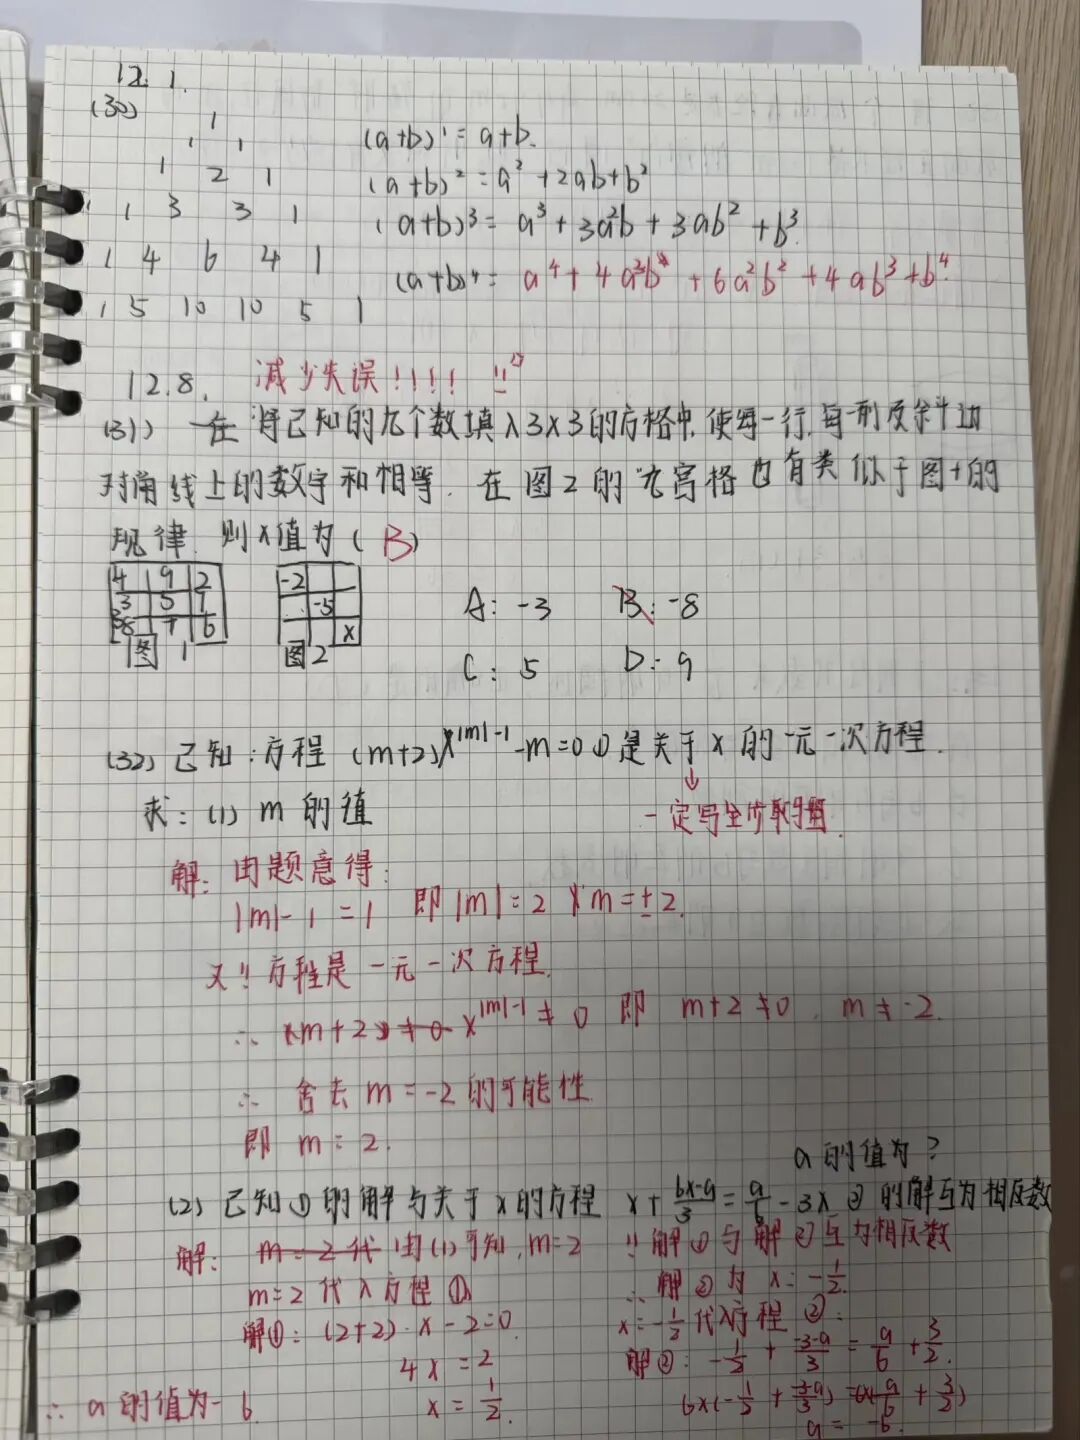 12.1.
(30)
1
1 1
1 2 1
1 3 3 1
1 4 6 4 1
1 5 10 10 5 1
(a+b)¹=a+b.
(a+b)²=a²+2ab+b²
(a+b)³=a³+3a²b+3ab²+b³.
(a+b)⁴=a⁴+4a³b+6a²b²+4ab³+b⁴.
12.8. 减少失误!!!!
(31) 将已知的九个数填入3×3的方格中,使每一行,每一列及斜边
对角线上的数字和相等.在图2的九宫格也有类似于图1的
规律.则x值为(B)
4 9 2
3 5 7
8 7 6
图1
-2
-5
x
图2
A: -3 B: -8
C: 5 D: 9
(32) 已知:方程 (m+2)x^|m|-1-m=0①是关于x的一元一次方程.
求:(1) m的值
一定写全步骤
解:由题意得:
|m|-1=1 即|m|=2 m=±2.
又∵方程是一元一次方程.
∴ x^|m|-1≠0 即 m+2≠0. m≠-2.
∴ 舍去m=-2的可能性
即 m=2.
a的值为?
(2) 已知①的解与关于x的方程 x+(6x-a)/3=a/6-3x②的解互为相反数
解: m=2代 由(1)可知,m=2
m=2代入方程①
解①:(2+2)·x-2=0.
4x=2
x=1/2.
∵解①与解②互为相反数
∴解②为x=-1/2.
x=-1/2代入方程②:
解②:-1/2+(-3-a)/3=a/6+3/2.
6×(-1/2+(-3-a)/3)=6×(a/6+3/2)
a=-6.
∴a的值为-6